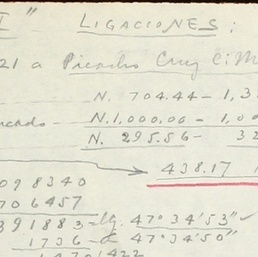 I" LIGACIONES:
21 a Picacho Cruz C.M
N. 704.44 - 1,3
ncado - N. 1,000.00 - 1,00
N. 295.56 - 32
438.17
098340
706457
391883 = lg. 47° 34' 53"
1736 - d 47° 34' 50"